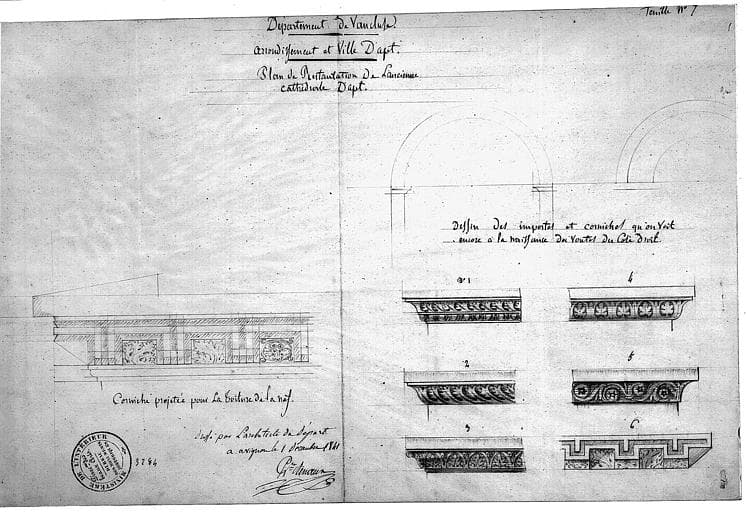 feuille N° 7
Département de Vaucluse
arrondissement et Ville D'apt.
Plan de Restauration De L'ancienne
cathédrale D'apt.
Dessin des impostes et corniches qu'on Voit
encore à la naissance des Voutes du Coté droit.
1
4
2
5
3
6
Corniche projetée pour La toiture de la nef
par L'architecte du Départ
a avignon le 1 Décembre 1841
MINISTERE DE L'INTÉRIEUR
3284